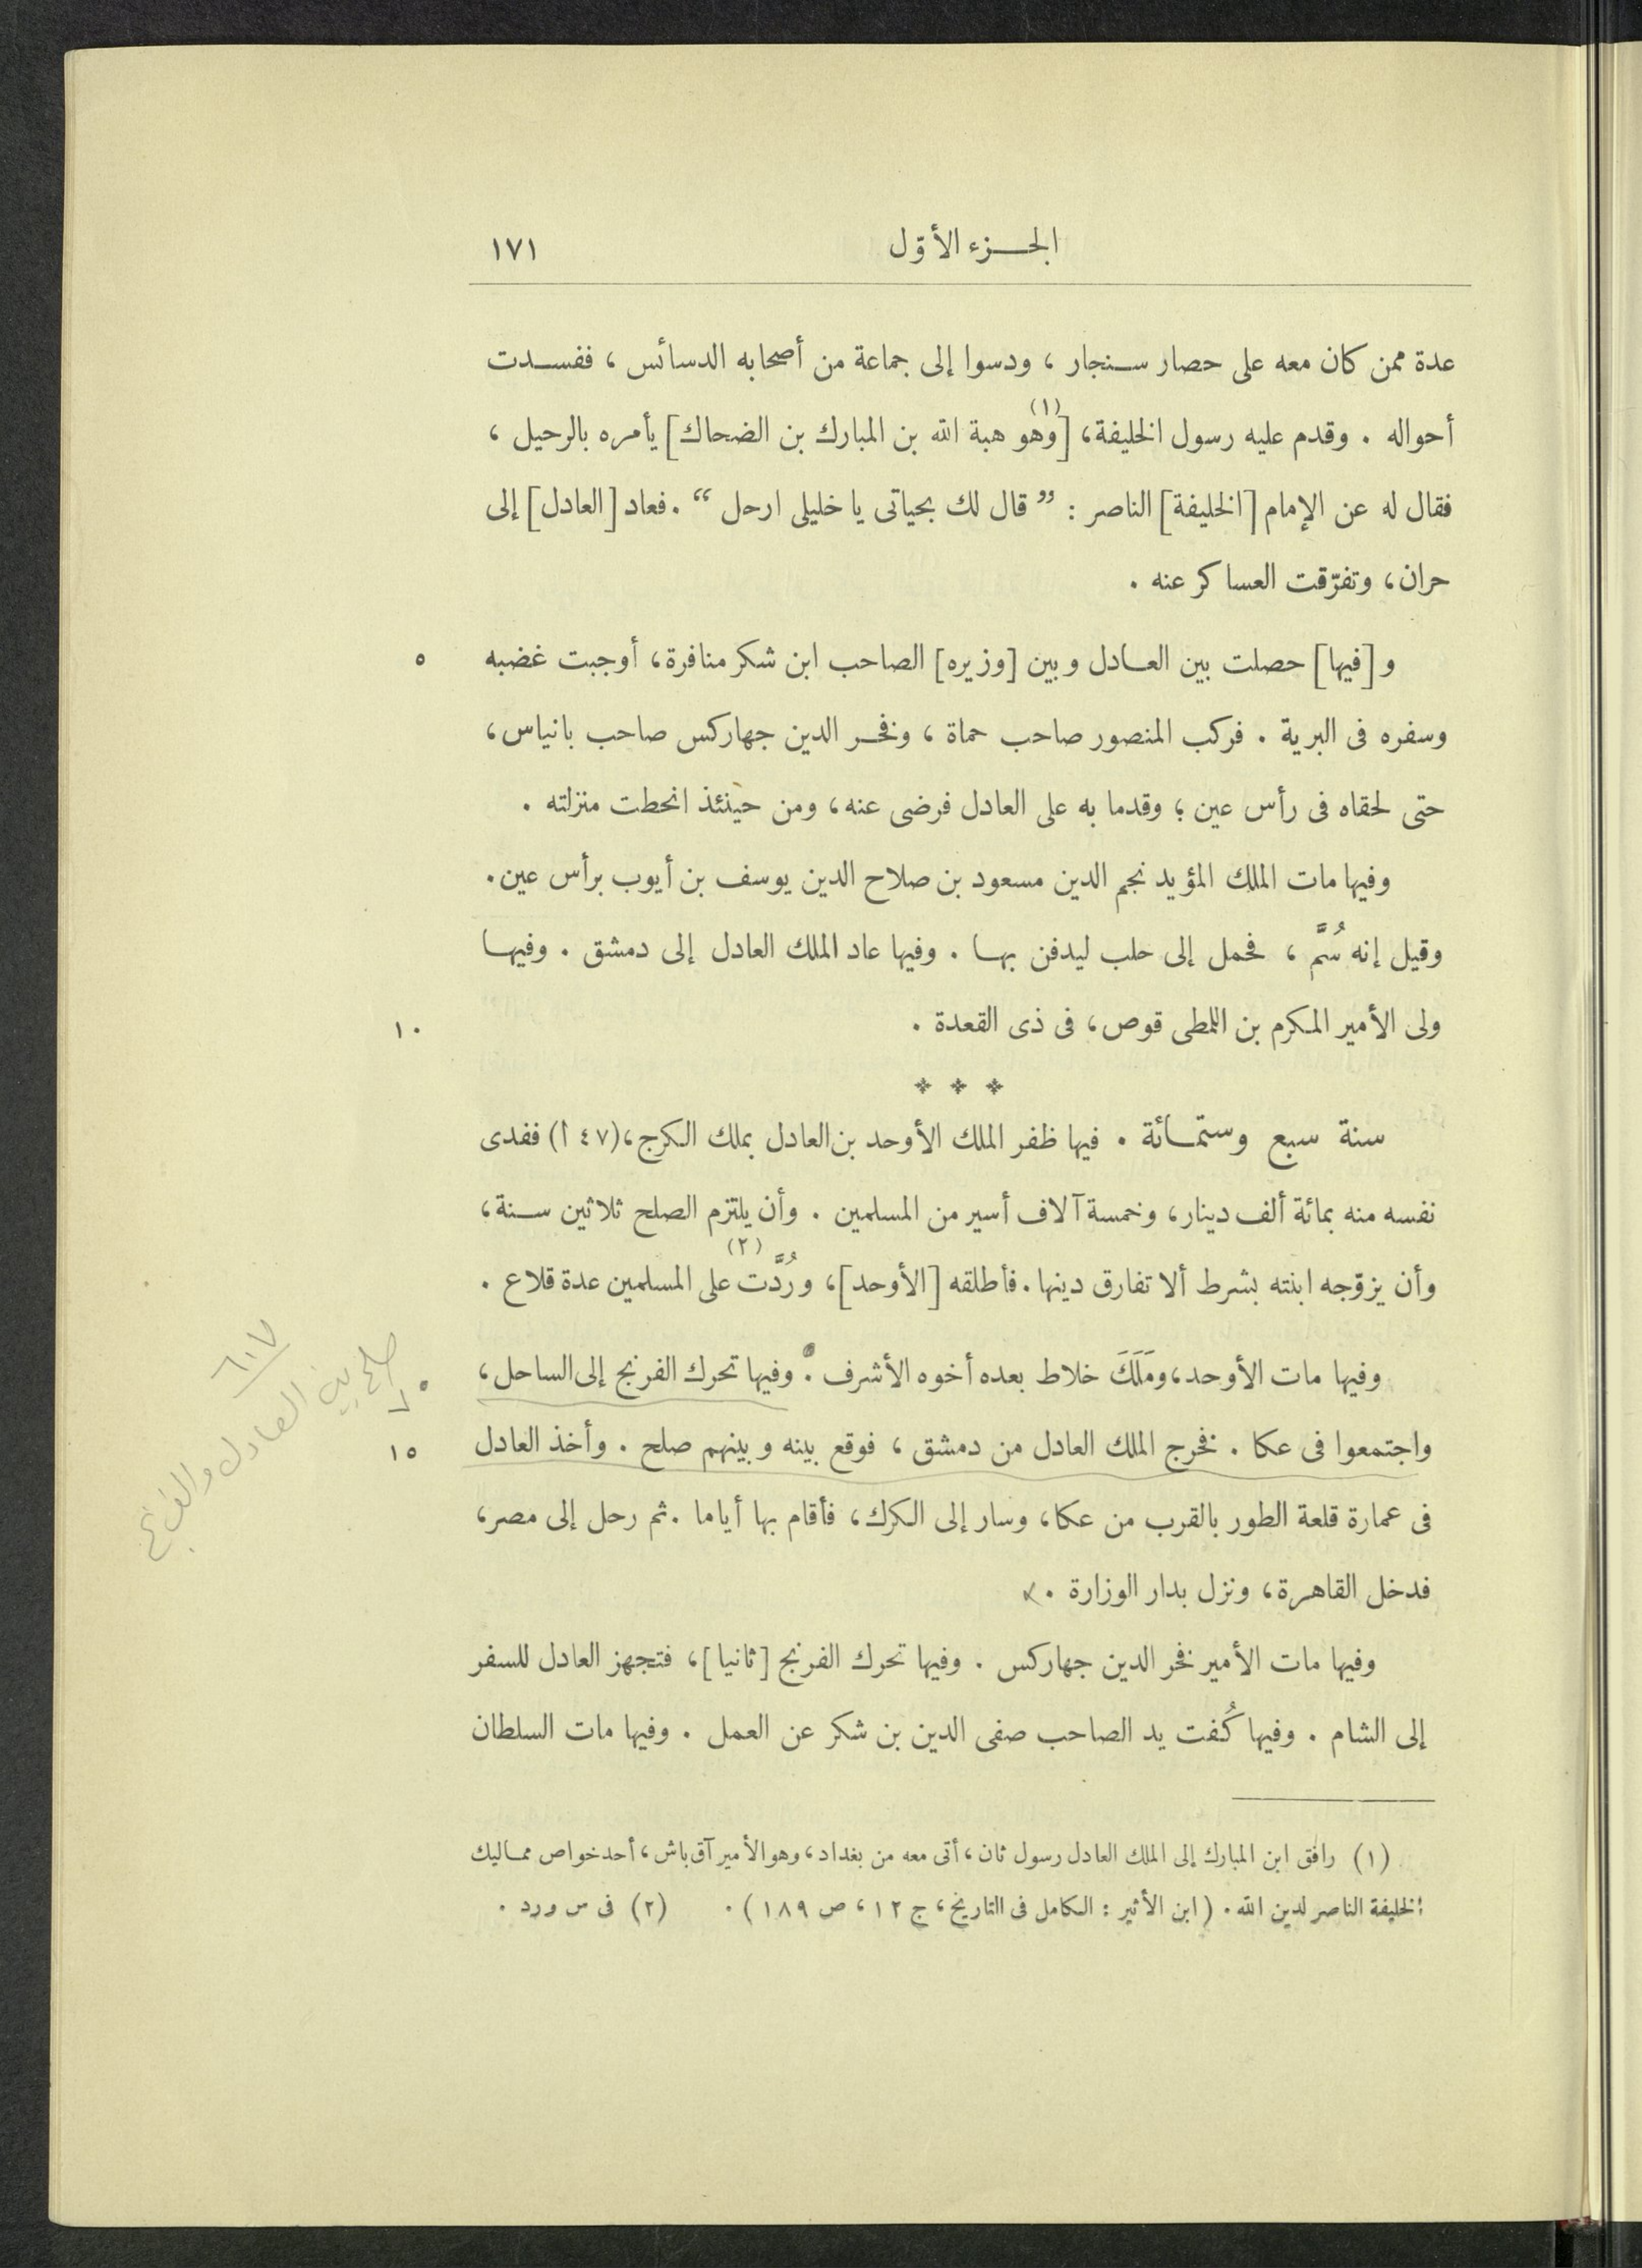 الجزء الأوّل ١٧١
عدة ممن كان معه على حصار سنجار ، ودسوا إلى جماعة من أصحابه الدسائس ، ففسدت
أحواله . وقدم عليه رسول الخليفة، [وهو (١) هبة الله بن المبارك بن الضحاك] يأمره بالرحيل ،
فقال له عن الإمام [الخليفة] الناصر : ” قال لك بحياتى يا خليلى ارحل “ . فعاد [العادل] إلى
حران، وتفرّقت العساكر عنه .
و [فيها] حصلت بين العادل وبين [وزيره] الصاحب ابن شكر منافرة، أوجبت غضبه ٥
وسفره فى البرية . فركب المنصور صاحب حماة ، وفخر الدين جهاركس صاحب بانياس،
حتى لحقاه فى رأس عين ؛ وقدما به على العادل فرضى عنه، ومن حينئذ انحطت منزلته .
وفيها مات الملك المؤيد نجم الدين مسعود بن صلاح الدين يوسف بن أيوب برأس عين.
وقيل إنه سُمَّ ، فحمل إلى حلب ليدفن بها . وفيها عاد الملك العادل إلى دمشق . وفيها
ولى الأمير المكرم بن اللمطى قوص، فى ذى القعدة . ١٠
* * *
سنة سبع وستمائة . فيها ظفر الملك الأوحد بن العادل بملك الكرج، (٤٧ أ) ففدى
نفسه منه بمائة ألف دينار، وخمسة آلاف أسير من المسلمين . وأن يلتزم الصلح ثلاثين سنة،
وأن يزوّجه ابنته بشرط ألا تفارق دينها . فأطلقه [الأوحد]، ورُدَّت (٢) على المسلمين عدة قلاع .
وفيها مات الأوحد، ومَلَكَ خلاط بعده أخوه الأشرف . وفيها تحرك الفرنج إلى الساحل،
واجتمعوا فى عكا . فخرج الملك العادل من دمشق ، فوقع بينه وبينهم صلح . وأخذ العادل ١٥
فى عمارة قلعة الطور بالقرب من عكا، وسار إلى الكرك، فأقام بها أياما . ثم رحل إلى مصر،
فدخل القاهرة، ونزل بدار الوزارة .
وفيها مات الأمير فخر الدين جهاركس . وفيها تحرك الفرنج [ثانيا]، فتجهز العادل للسفر
إلى الشام . وفيها كُفت يد الصاحب صفى الدين بن شكر عن العمل . وفيها مات السلطان
(١) رافق ابن المبارك إلى الملك العادل رسول ثان، أتى معه من بغداد، وهو الأمير آق باش، أحد خواص مماليك
الخليفة الناصر لدين الله. (ابن الأثير : الكامل فى التاريخ، ج ١٢، ص ١٨٩) . (٢) فى س ورد .
صلح بين العادل والفرنج
٦٠٧